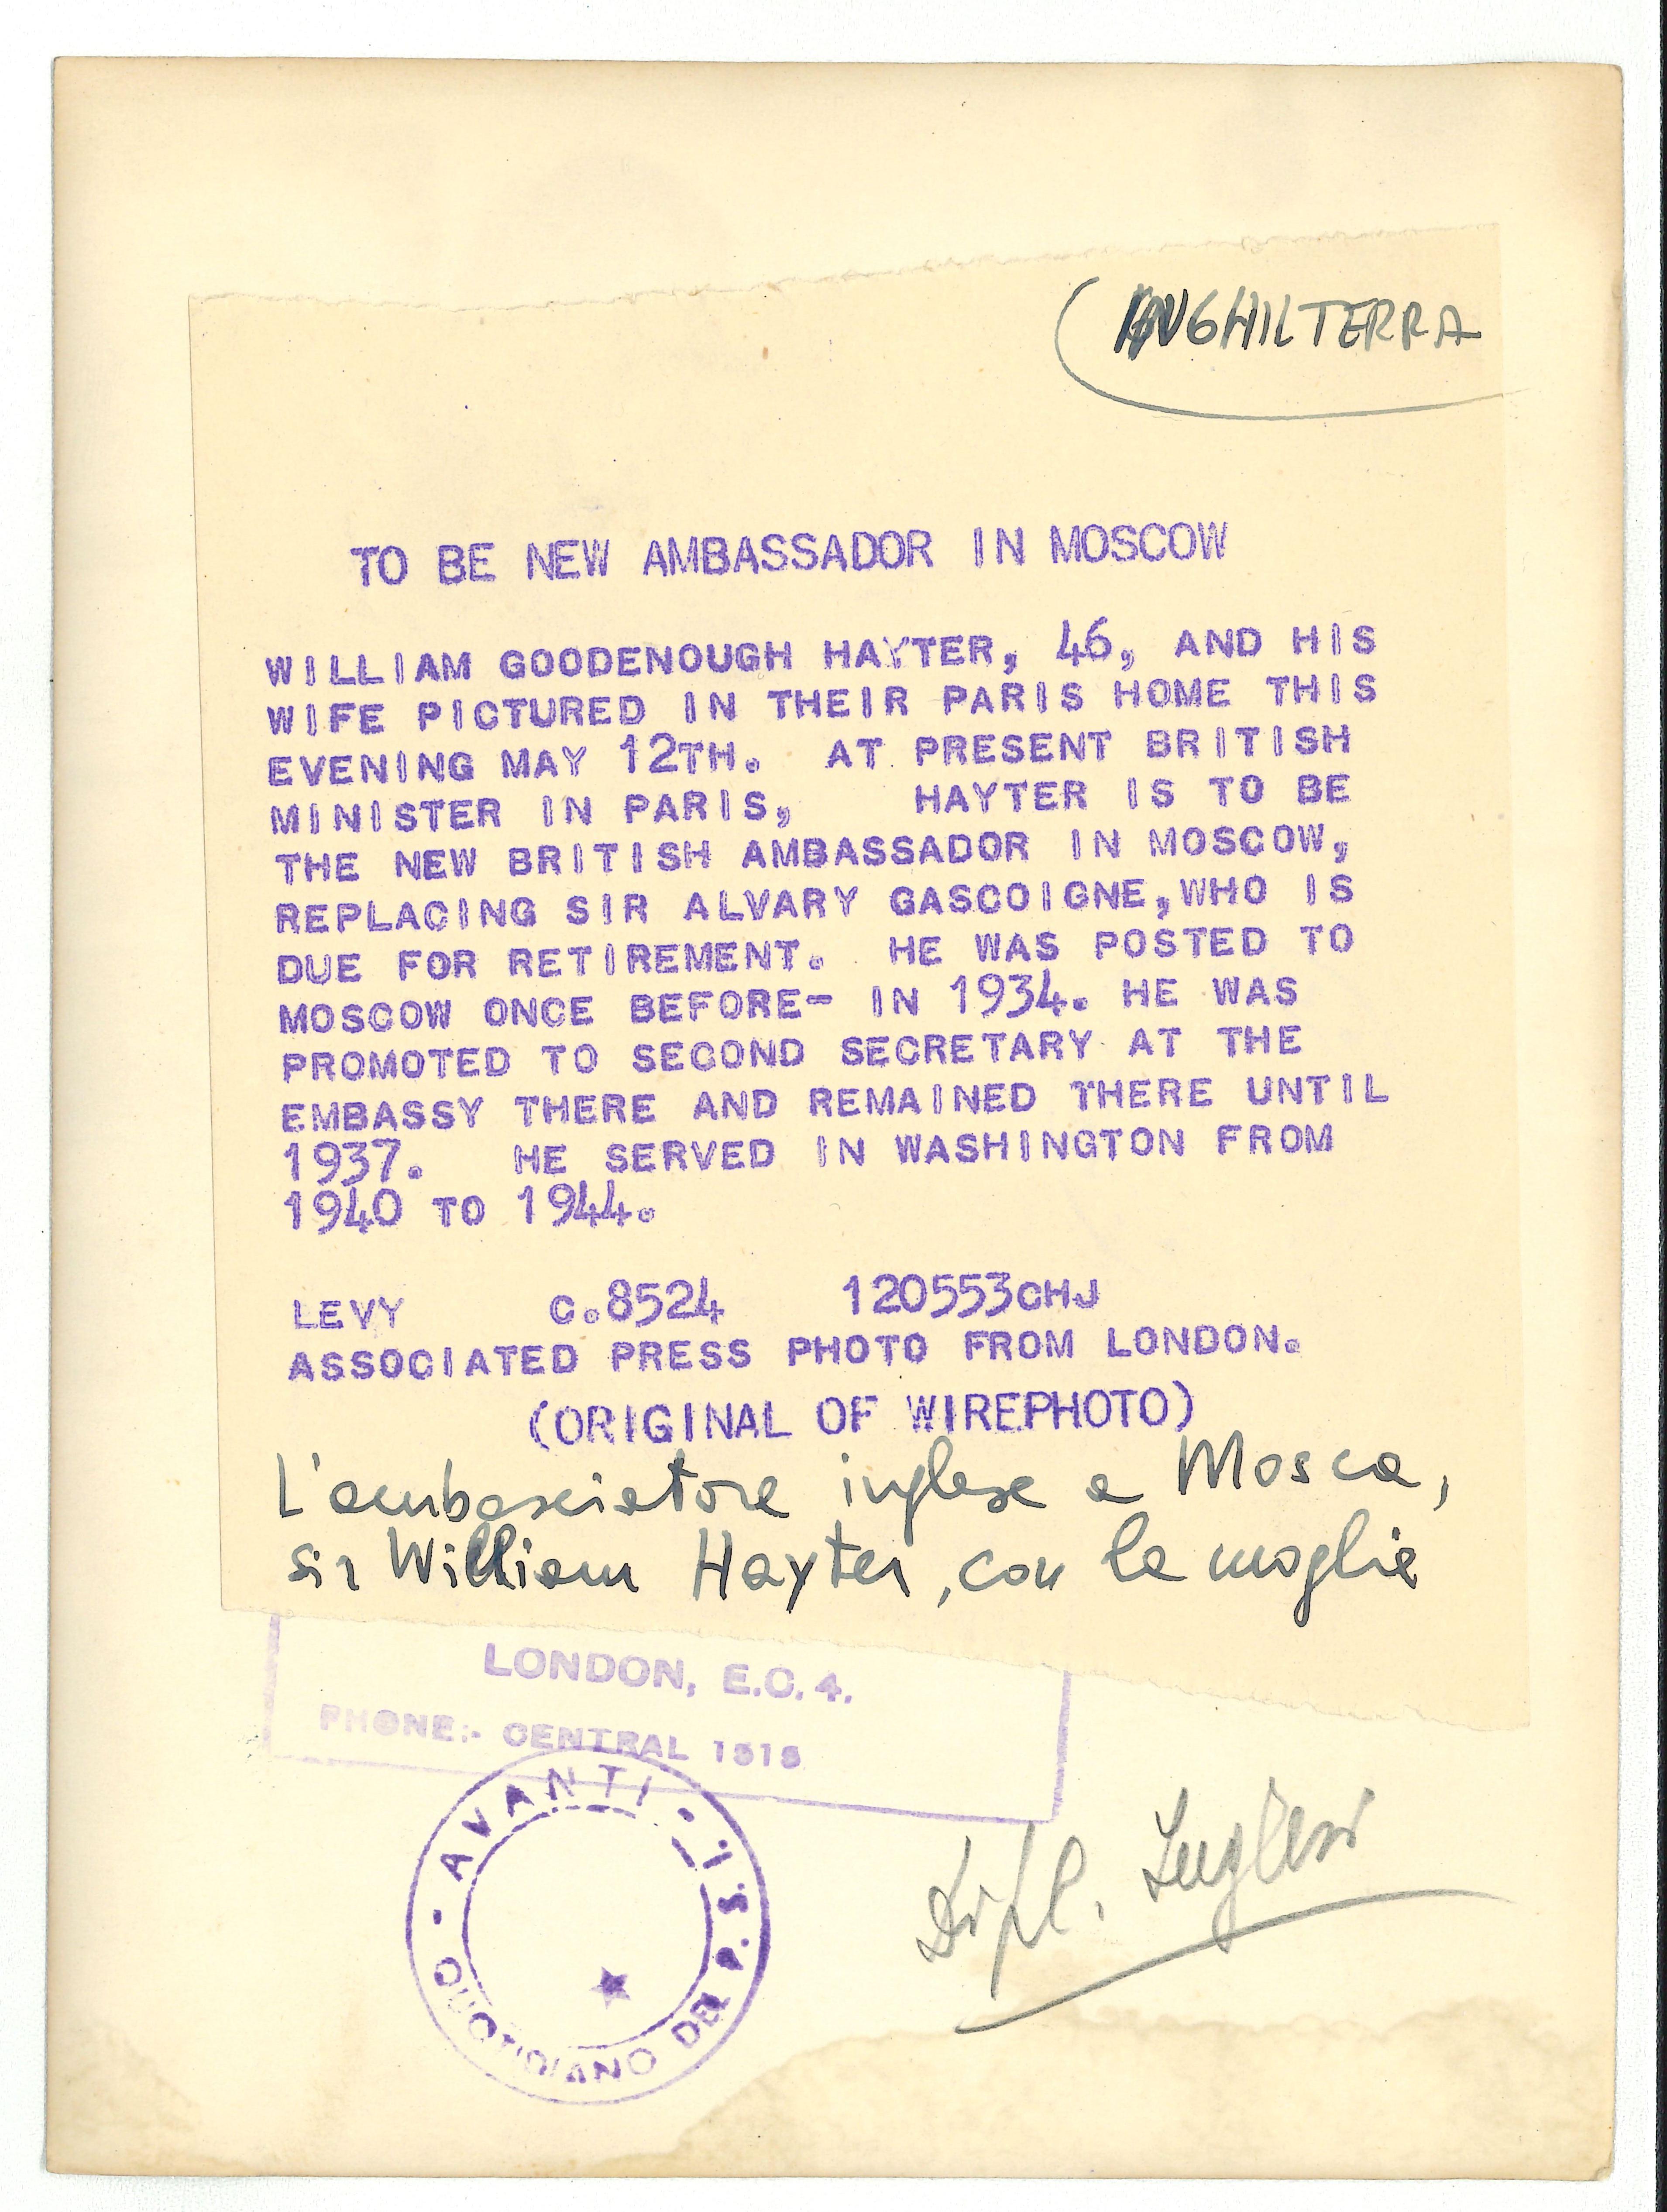 INGHILTERRA
TO BE NEW AMBASSADOR IN MOSCOW
WILLIAM GOODENOUGH HAYTER, 46, AND HIS
WIFE PICTURED IN THEIR PARIS HOME THIS
EVENING MAY 12TH. AT PRESENT BRITISH
MINISTER IN PARIS, HAYTER IS TO BE
THE NEW BRITISH AMBASSADOR IN MOSCOW,
REPLACING SIR ALVARY GASCOIGNE,WHO IS
DUE FOR RETIREMENT. HE WAS POSTED TO
MOSCOW ONCE BEFORE- IN 1934. HE WAS
PROMOTED TO SECOND SECRETARY AT THE
EMBASSY THERE AND REMAINED THERE UNTIL
1937. HE SERVED IN WASHINGTON FROM
1940 TO 1944.
LEVY C.8524 120553CHJ
ASSOCIATED PRESS PHOTO FROM LONDON.
(ORIGINAL OF WIREPHOTO)
L'ambasciatore inglese a Mosca,
sir William Hayter, con la moglie
LONDON, E.C.4.
PHONE:- CENTRAL 1515
- AVANTI - QUOTIDIANO DEL P.S.I.
Dipl. Inglesi